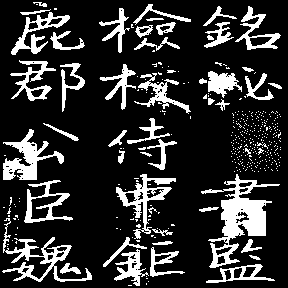 銘祕書監
檢校侍中鉅
鹿郡公臣魏